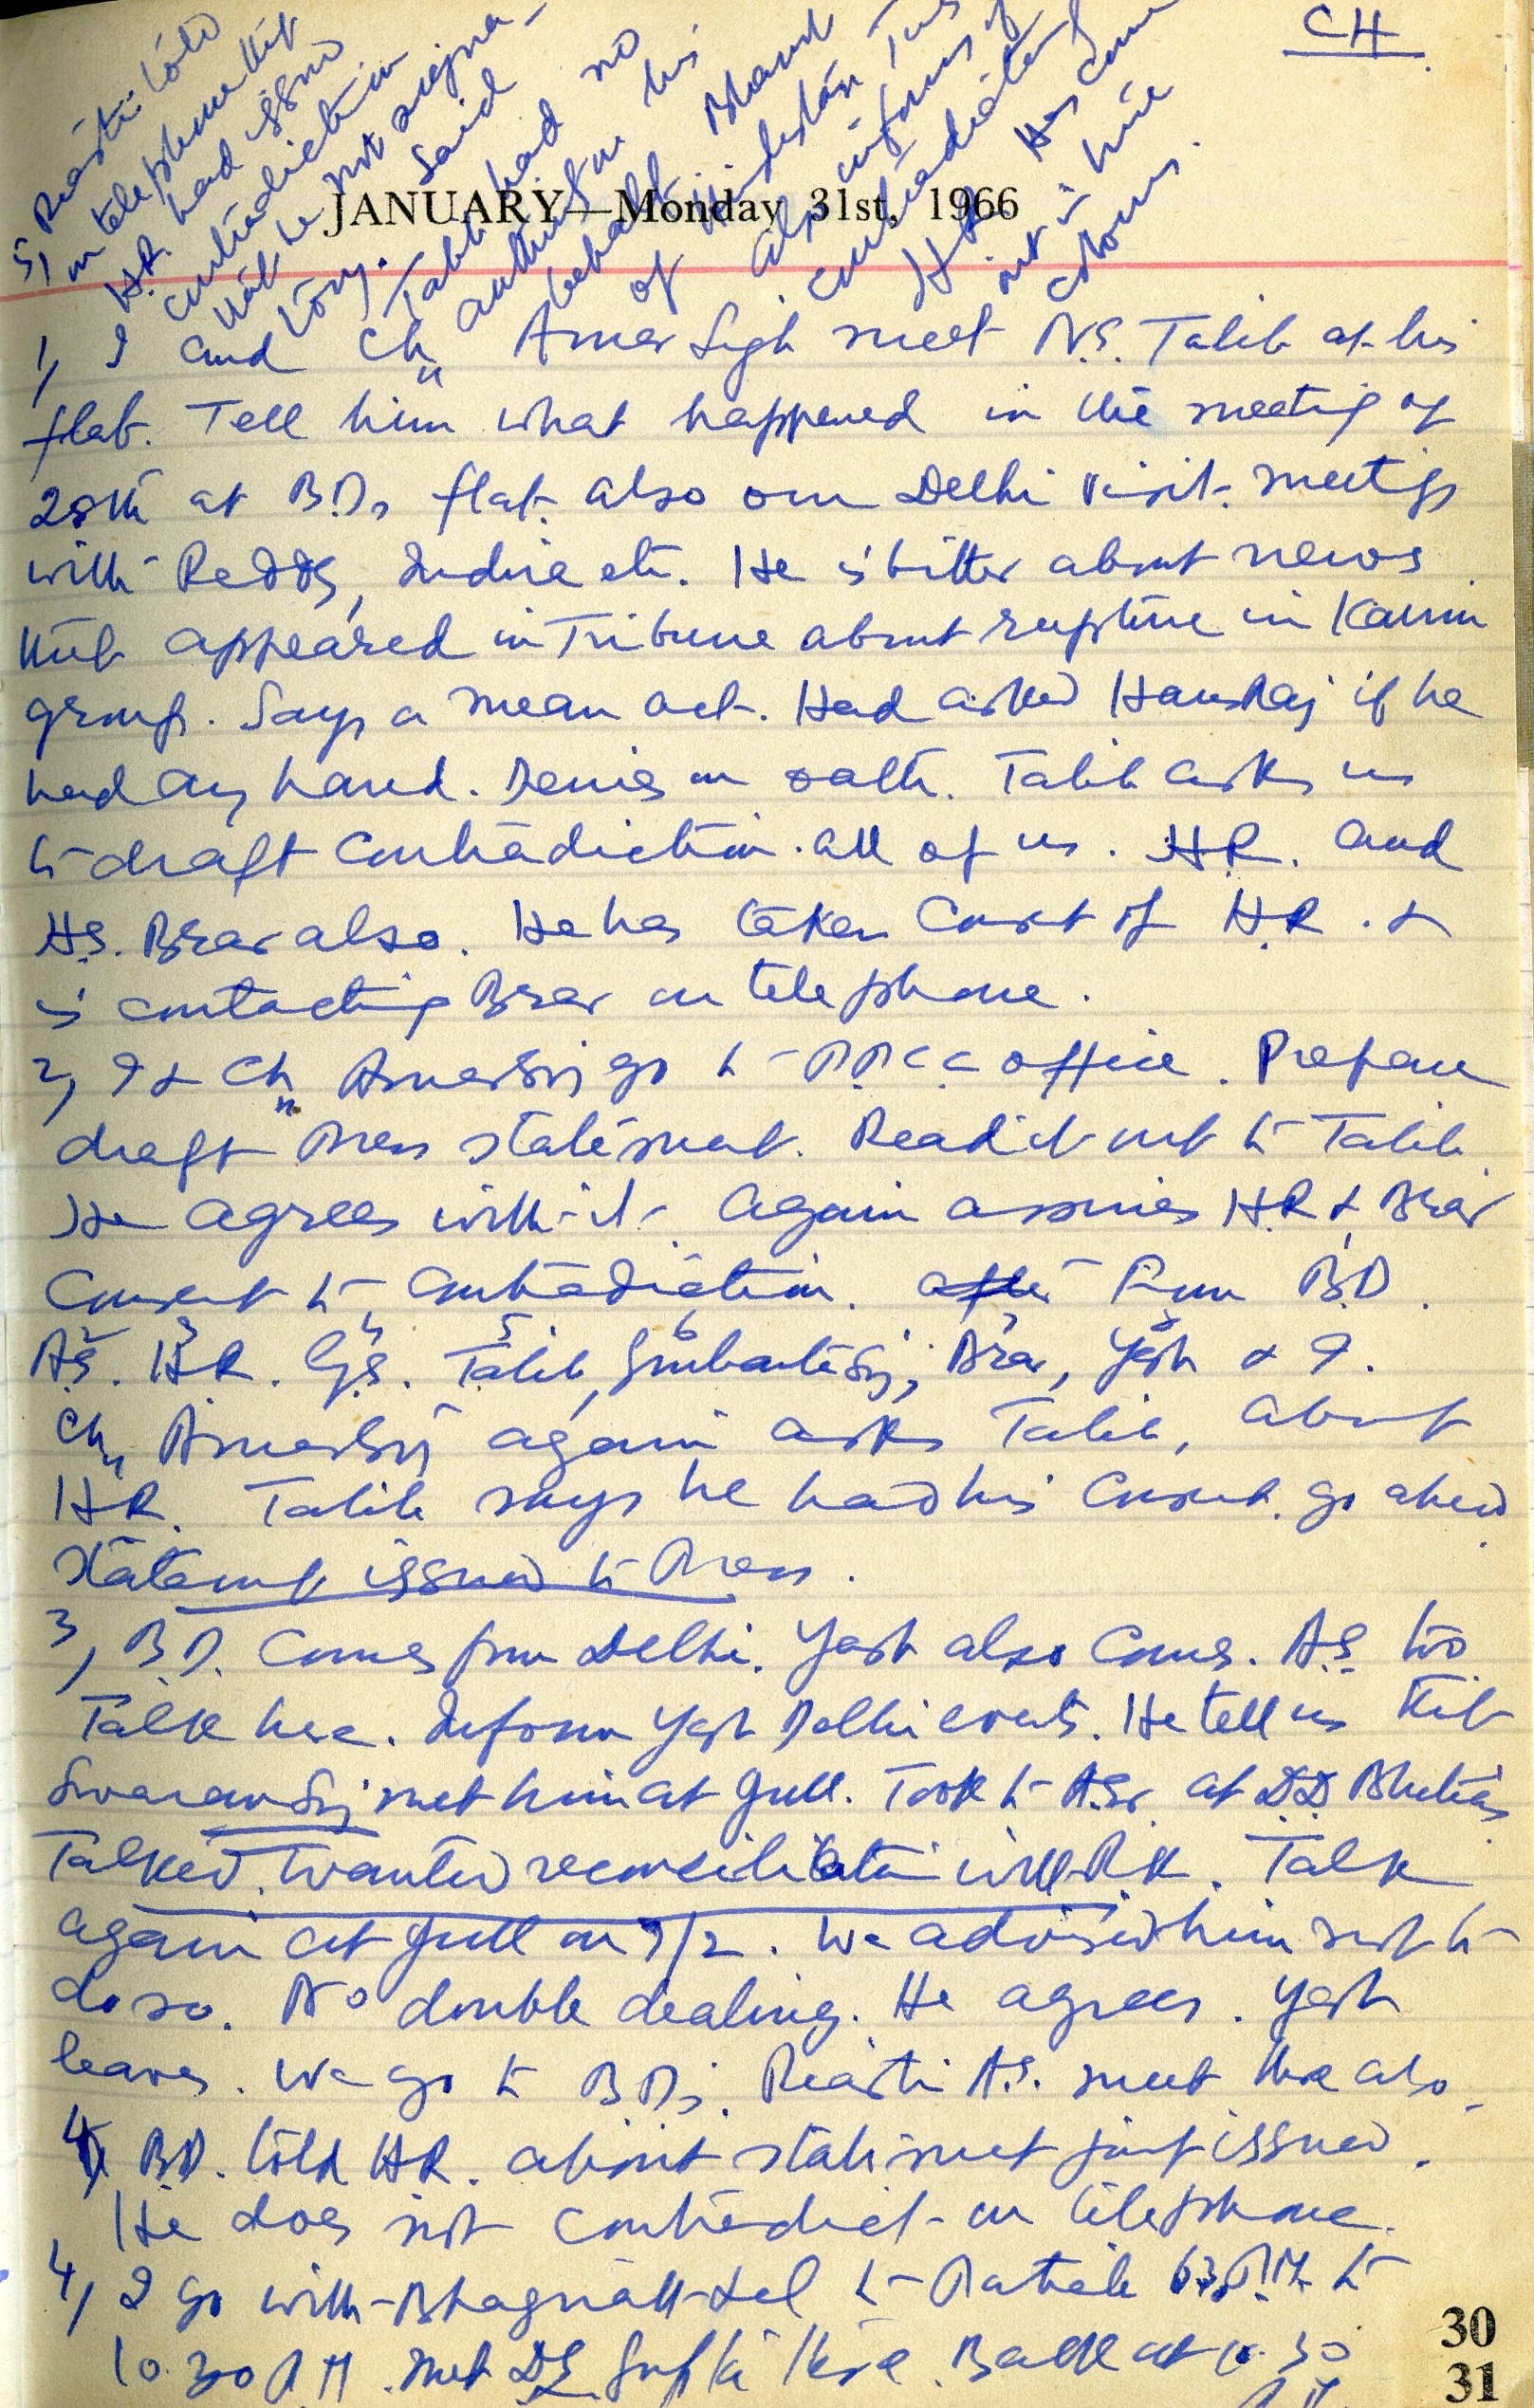 CH
JANUARY—Monday 31st, 1966
5) told
on telephone that
H.R. had issued
contradiction
that he not signa-
tory. Said
Talib had no
authority on his
behalf.
of Hindustan Times
also informs of
contradiction
H.R. Has come
out in true
colours.
1, I and Ch,, Amar Singh meet N.S. Talib at his
flat. Tell him what happened in the meeting of
28th at B.Ds flat. also our Delhi visit. meetings
with Reddy, Indira etc. He is bitter about news
that appeared in Tribune about rupture in
group. Says a mean act. Had asked Hansraj if he
had any hand. Denies on oath. Talib asks us
to draft contradiction. all of us. H.R. and
H.S. Brar also. He has taken consent of H.R. &
is contacting Brar on telephone.
2, I & Ch,, Amar Sing go to P.P.C.C. office. Prepare
draft Press statement. Read it out to Talib.
He agrees with it. Again assures H.R & Brar
Consent to contradiction. from B.D.
A.S. H.R. G.S. Talib, Gurbanta Sing, Brar, Yash & I.
Ch,, Amar Sing again asks Talib, about
H.R. Talib says he had his consent. go ahead
Statement issued to Press.
3, B.D. comes from Delhi. Yash also comes. A.S. too
Talk here. Inform Yash Delhi events. He tell us that
Swaran Sing met him at Jull. Took to at D.D.
Talked. Wanted reconciliation with R.K. Talk
again at Jull on /2. We advised him not to
do so. No double dealing. He agrees. Yash
leaves. We go to BDs. A.S. meet there also.
4) BD. told HR. about statement just issued.
He does not contradict on telephone.
4, I go with Bhagnath Lal to Patiala P.M. to
10.30 P M. Met Gupta there. Back at 10.30
30
31